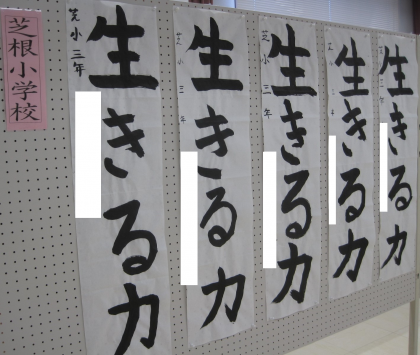 芝根小学校
生きる力
芝小三年
生きる力
芝小三年
生きる力
芝小三年
生きる力
芝小三年
生きる力